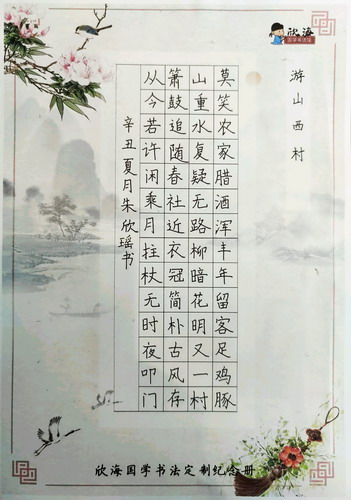 欣海
游山西村
莫笑农家腊酒浑丰年留客足鸡豚
山重水复疑无路柳暗花明又一村
箫鼓追随春社近衣冠简朴古风存
从今若许闲乘月拄杖无时夜叩门
辛丑夏月朱欣瑶书
欣海国学书法定制纪念册